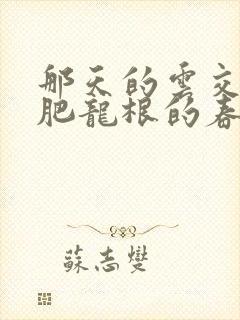 那天的雲交
肥龍根的春
蘇志燮